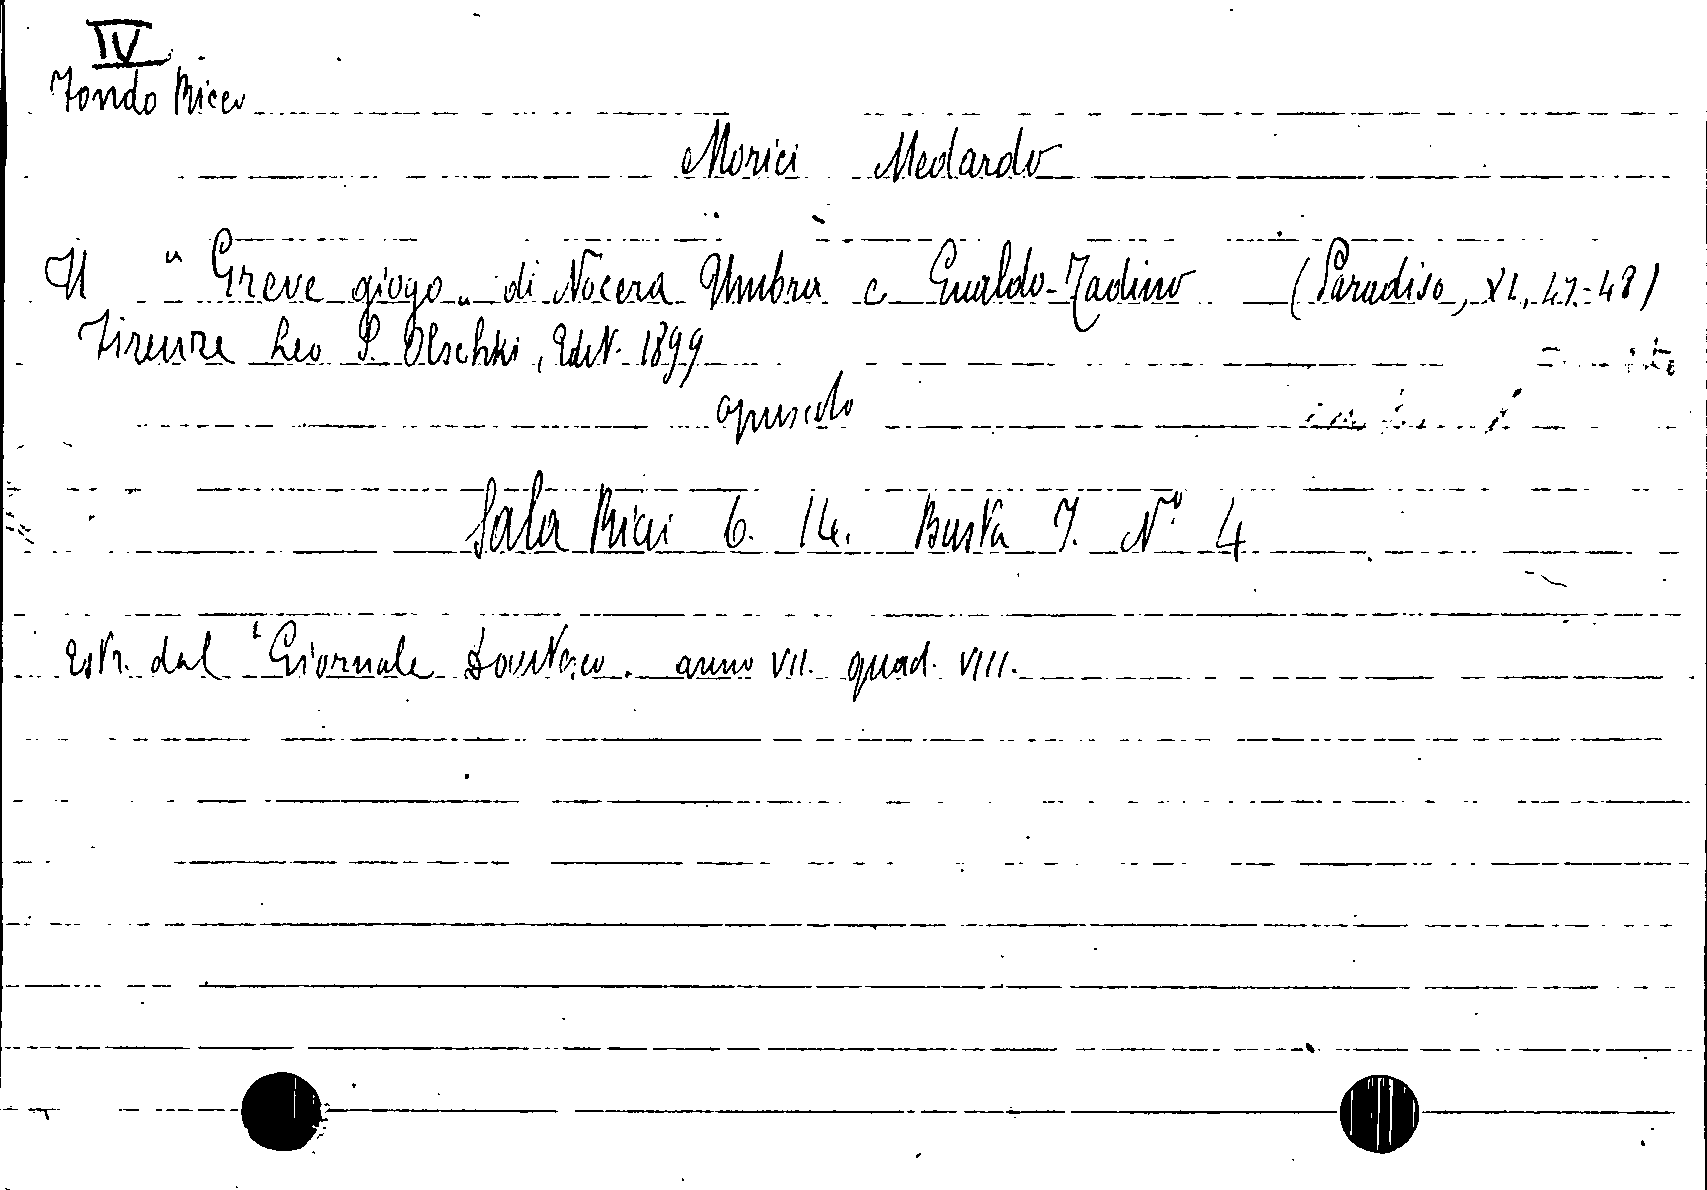 IV
Fondo Ricci
Morici Medardo
Il "Greve giogo" di Nocera Umbra e Gualdo-Tadino (Paradiso, XI, 47-48)
Firenze Leo S. Olschki, Edit. 1899
opuscolo
Sala Ricci 6. 14. Busta I. N° 4
Estr. dal "Giornale Dantesco. anno VII. quad. VIII.